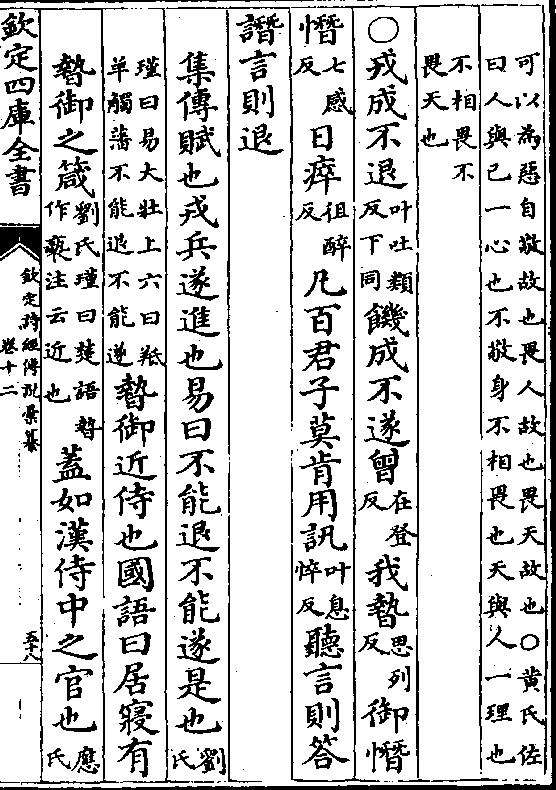 可以為惡自敬故也畏人故也畏天故也〇黃氏佐
曰人與己一心也不敬身不相畏也天與人一理也
不相畏不
畏天也
〇戎成不退叶吐類反下同饑成不遂曾在登反我暬思列反御憯
憯七感反日瘁徂醉反凡百君子莫肯用訊叶息悴反聽言則答
譖言則退
集傳賦也戎兵遂進也易曰不能退不能遂是也劉氏
瑾曰易大壯上六曰羝
羊觸藩不能退不能遂暬御近侍也國語曰居寢有
暬御之箴劉氏瑾曰楚語暬作褻注云近也蓋如漢侍中之官也應氏
欽定四庫全書
欽定詩經傳說彙纂
卷十二
五十八